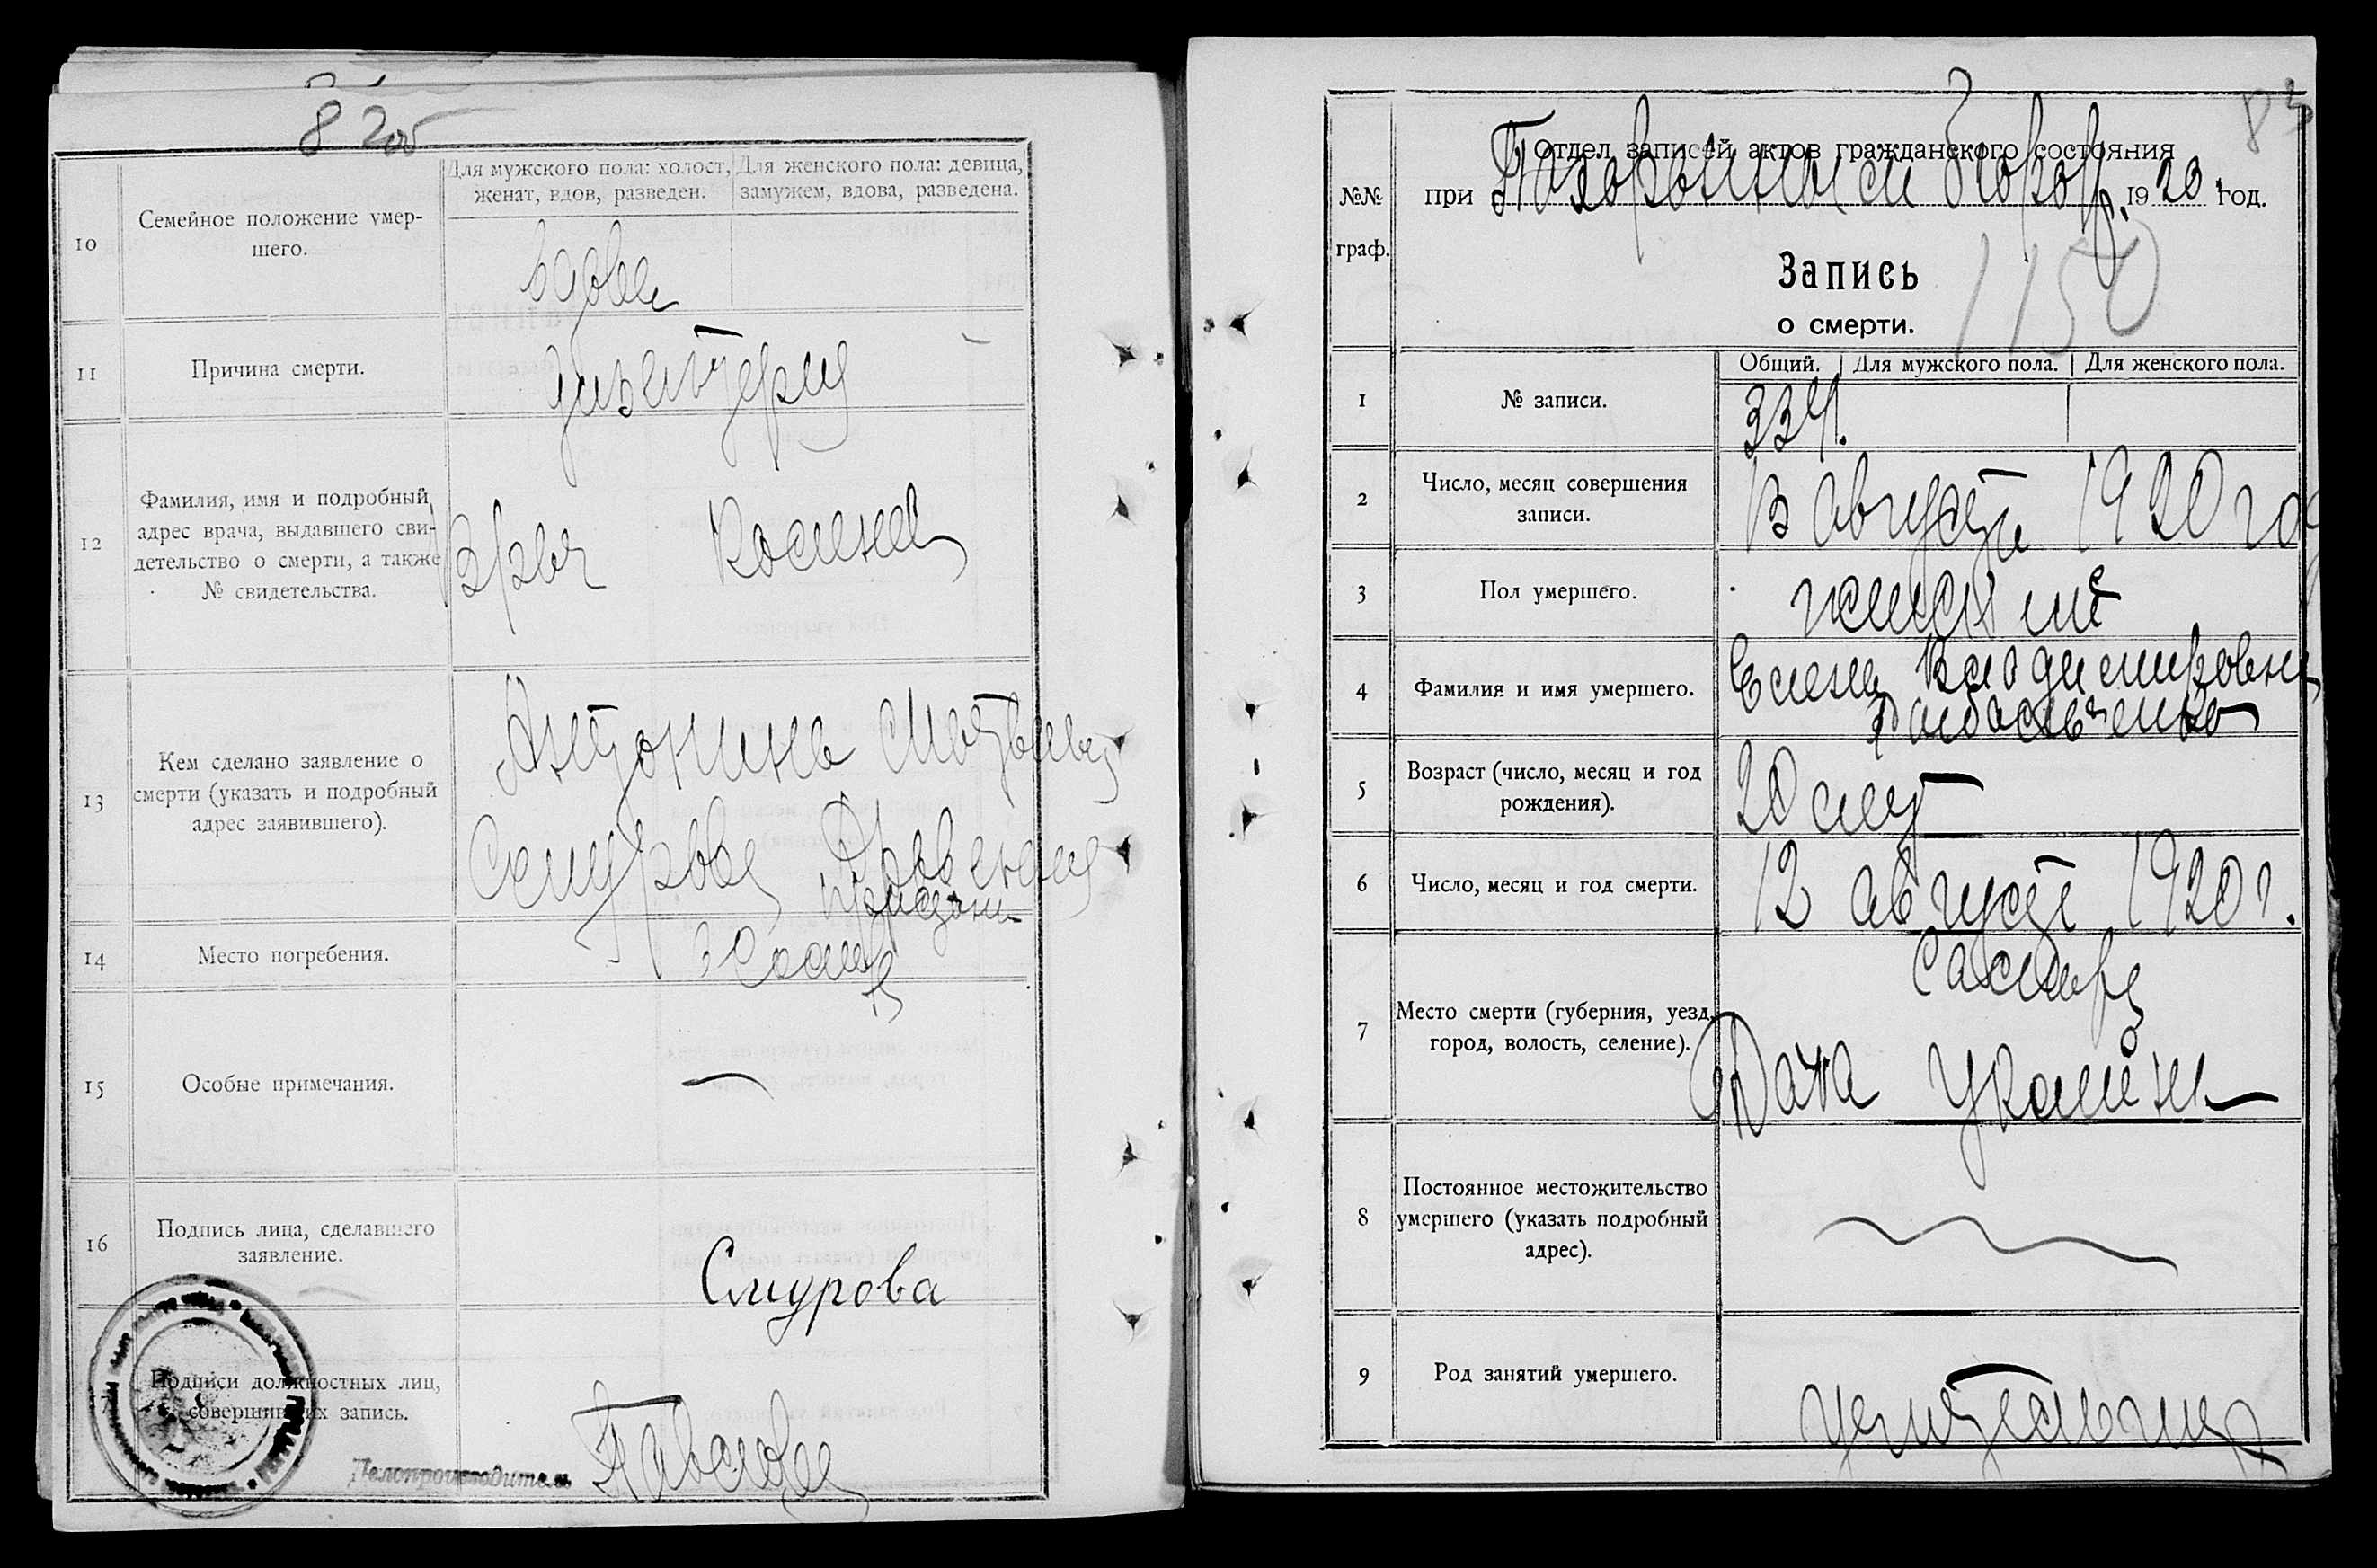 82об
10
Семейное положение умер-
шего.
Для мужского пола: холост,
женат, вдов, разведен.
Для женского пола: девица,
замужем, вдова, разведена.
вдова
11
Причина смерти.
дизентерия
12
Фамилия, имя и подробный
адрес врача, выдавшего сви-
детельство о смерти, а также
№ свидетельства.
Врач
13
Кем сделано заявление о
смерти (указать и подробный
адрес заявившего).
Антонина Матвеевна
Смурова
14
Место погребения.
15
Особые примечания.
16
Подпись лица, сделавшего
заявление.
Смурова
17
Подписи должностных лиц,
совершивших запись.
Делопроизводитель Павлова
83
№№
граф.
Отдел записей актов гражданского состояния
при Похоронным 1920 год.
1150
Запись
о смерти.
1
№ записи.
Общий. Для мужского пола. Для женского пола.
334.
2
Число, месяц совершения
записи.
13 августа 1920 год
3
Пол умершего.
женский
4
Фамилия и имя умершего.
Елена Владимировна
5
Возраст (число, месяц и год
рождения).
20 лет
6
Число, месяц и год смерти.
12 августа 1920 г.
7
Место смерти (губерния, уезд,
город, волость, селение).
Самара
8
Постоянное местожительство
умершего (указать подробный
адрес).
9
Род занятий умершего.
учительница